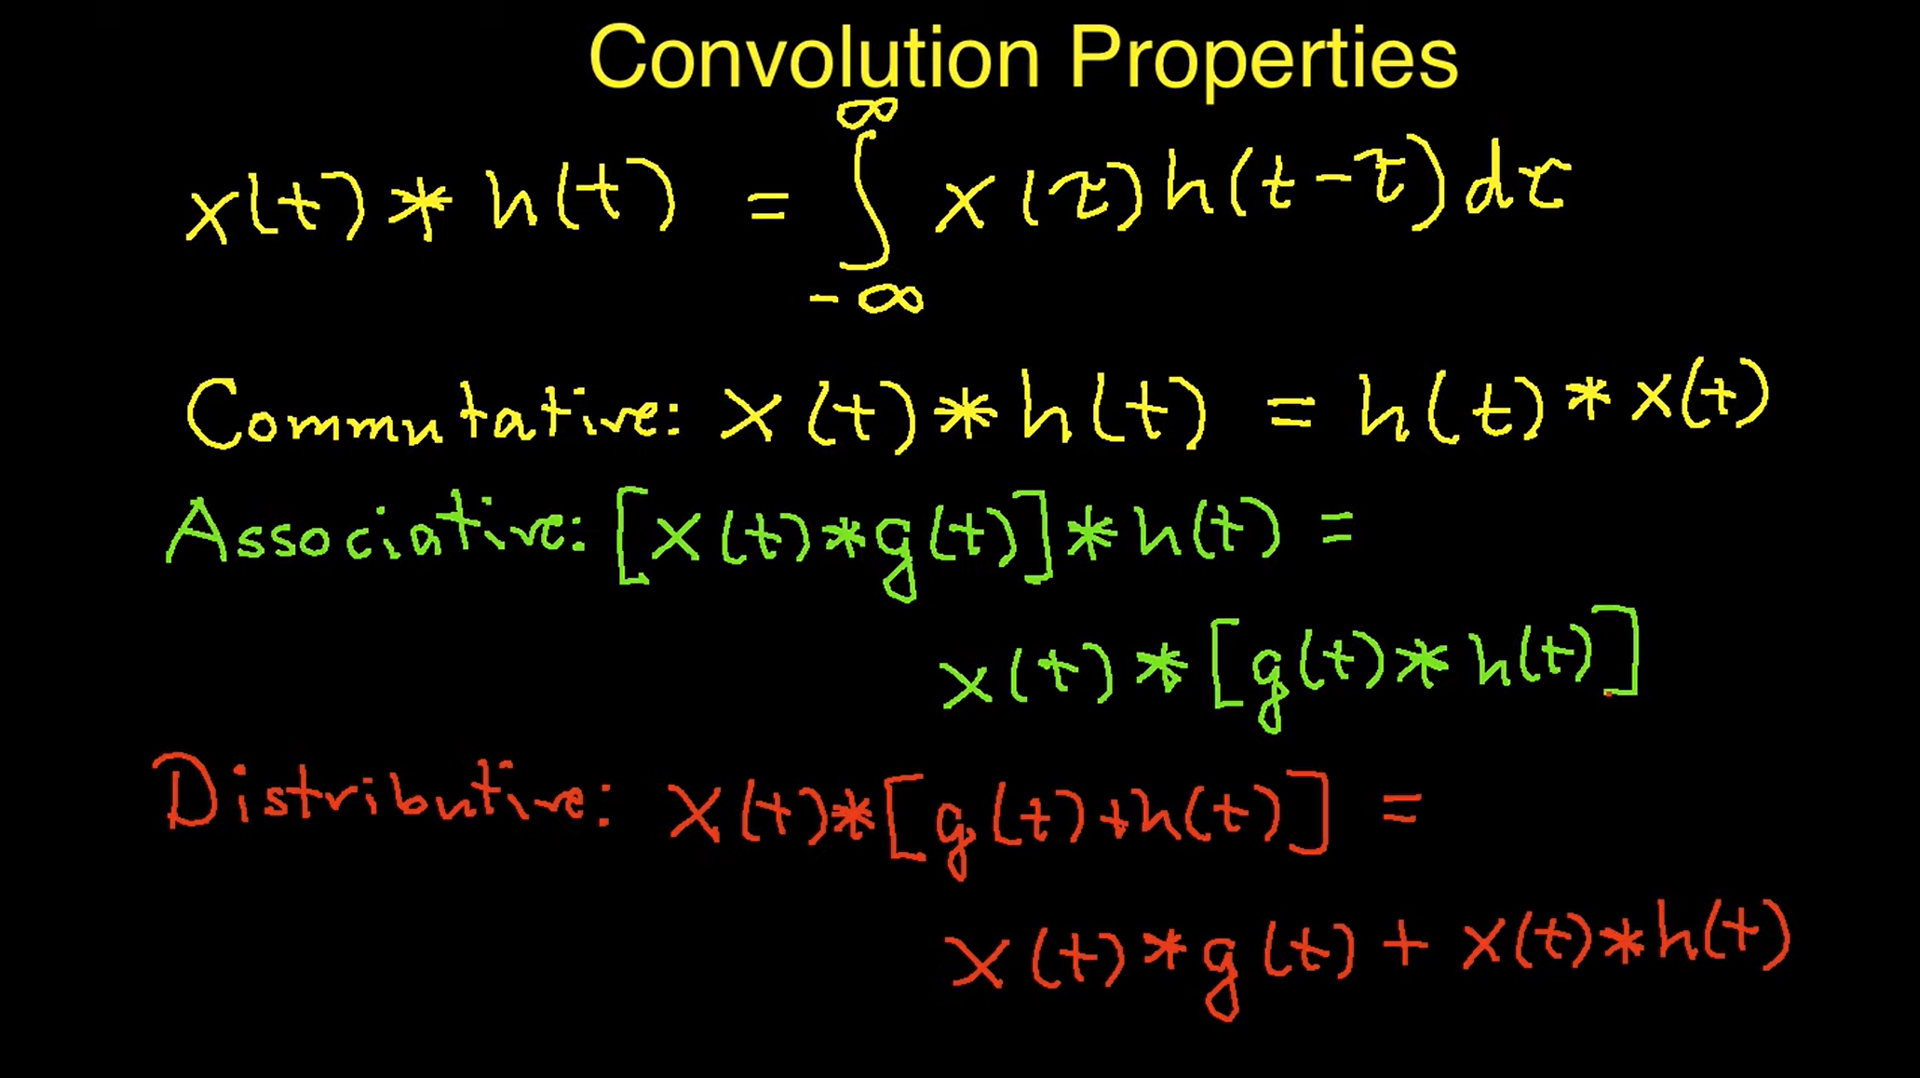 Convolution Properties
x(t) * h(t) = ∫_{-∞}^{∞} x(τ) h(t-τ) dτ
Commutative: x(t) * h(t) = h(t) * x(t)
Associative: [x(t) * g(t)] * h(t) =
x(t) * [g(t) * h(t)]
Distributive: x(t) * [g(t) + h(t)] =
x(t) * g(t) + x(t) * h(t)